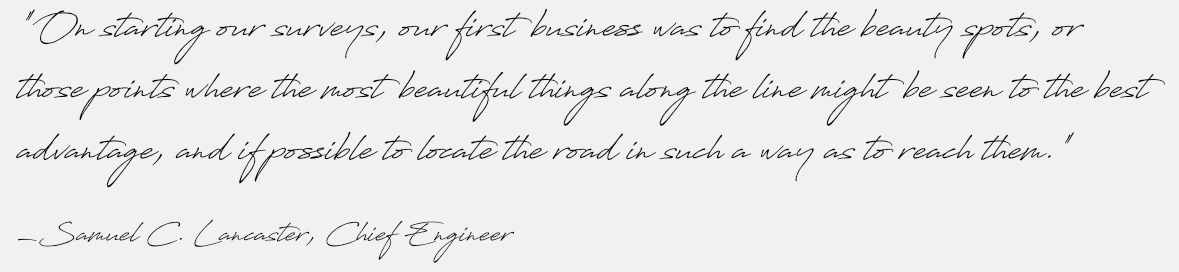 "On starting our surveys, our first business was to find the beauty spots, or
those points where the most beautiful things along the line might be seen to the best
advantage, and if possible to locate the road in such a way as to reach them."
—Samuel C. Lancaster, Chief Engineer